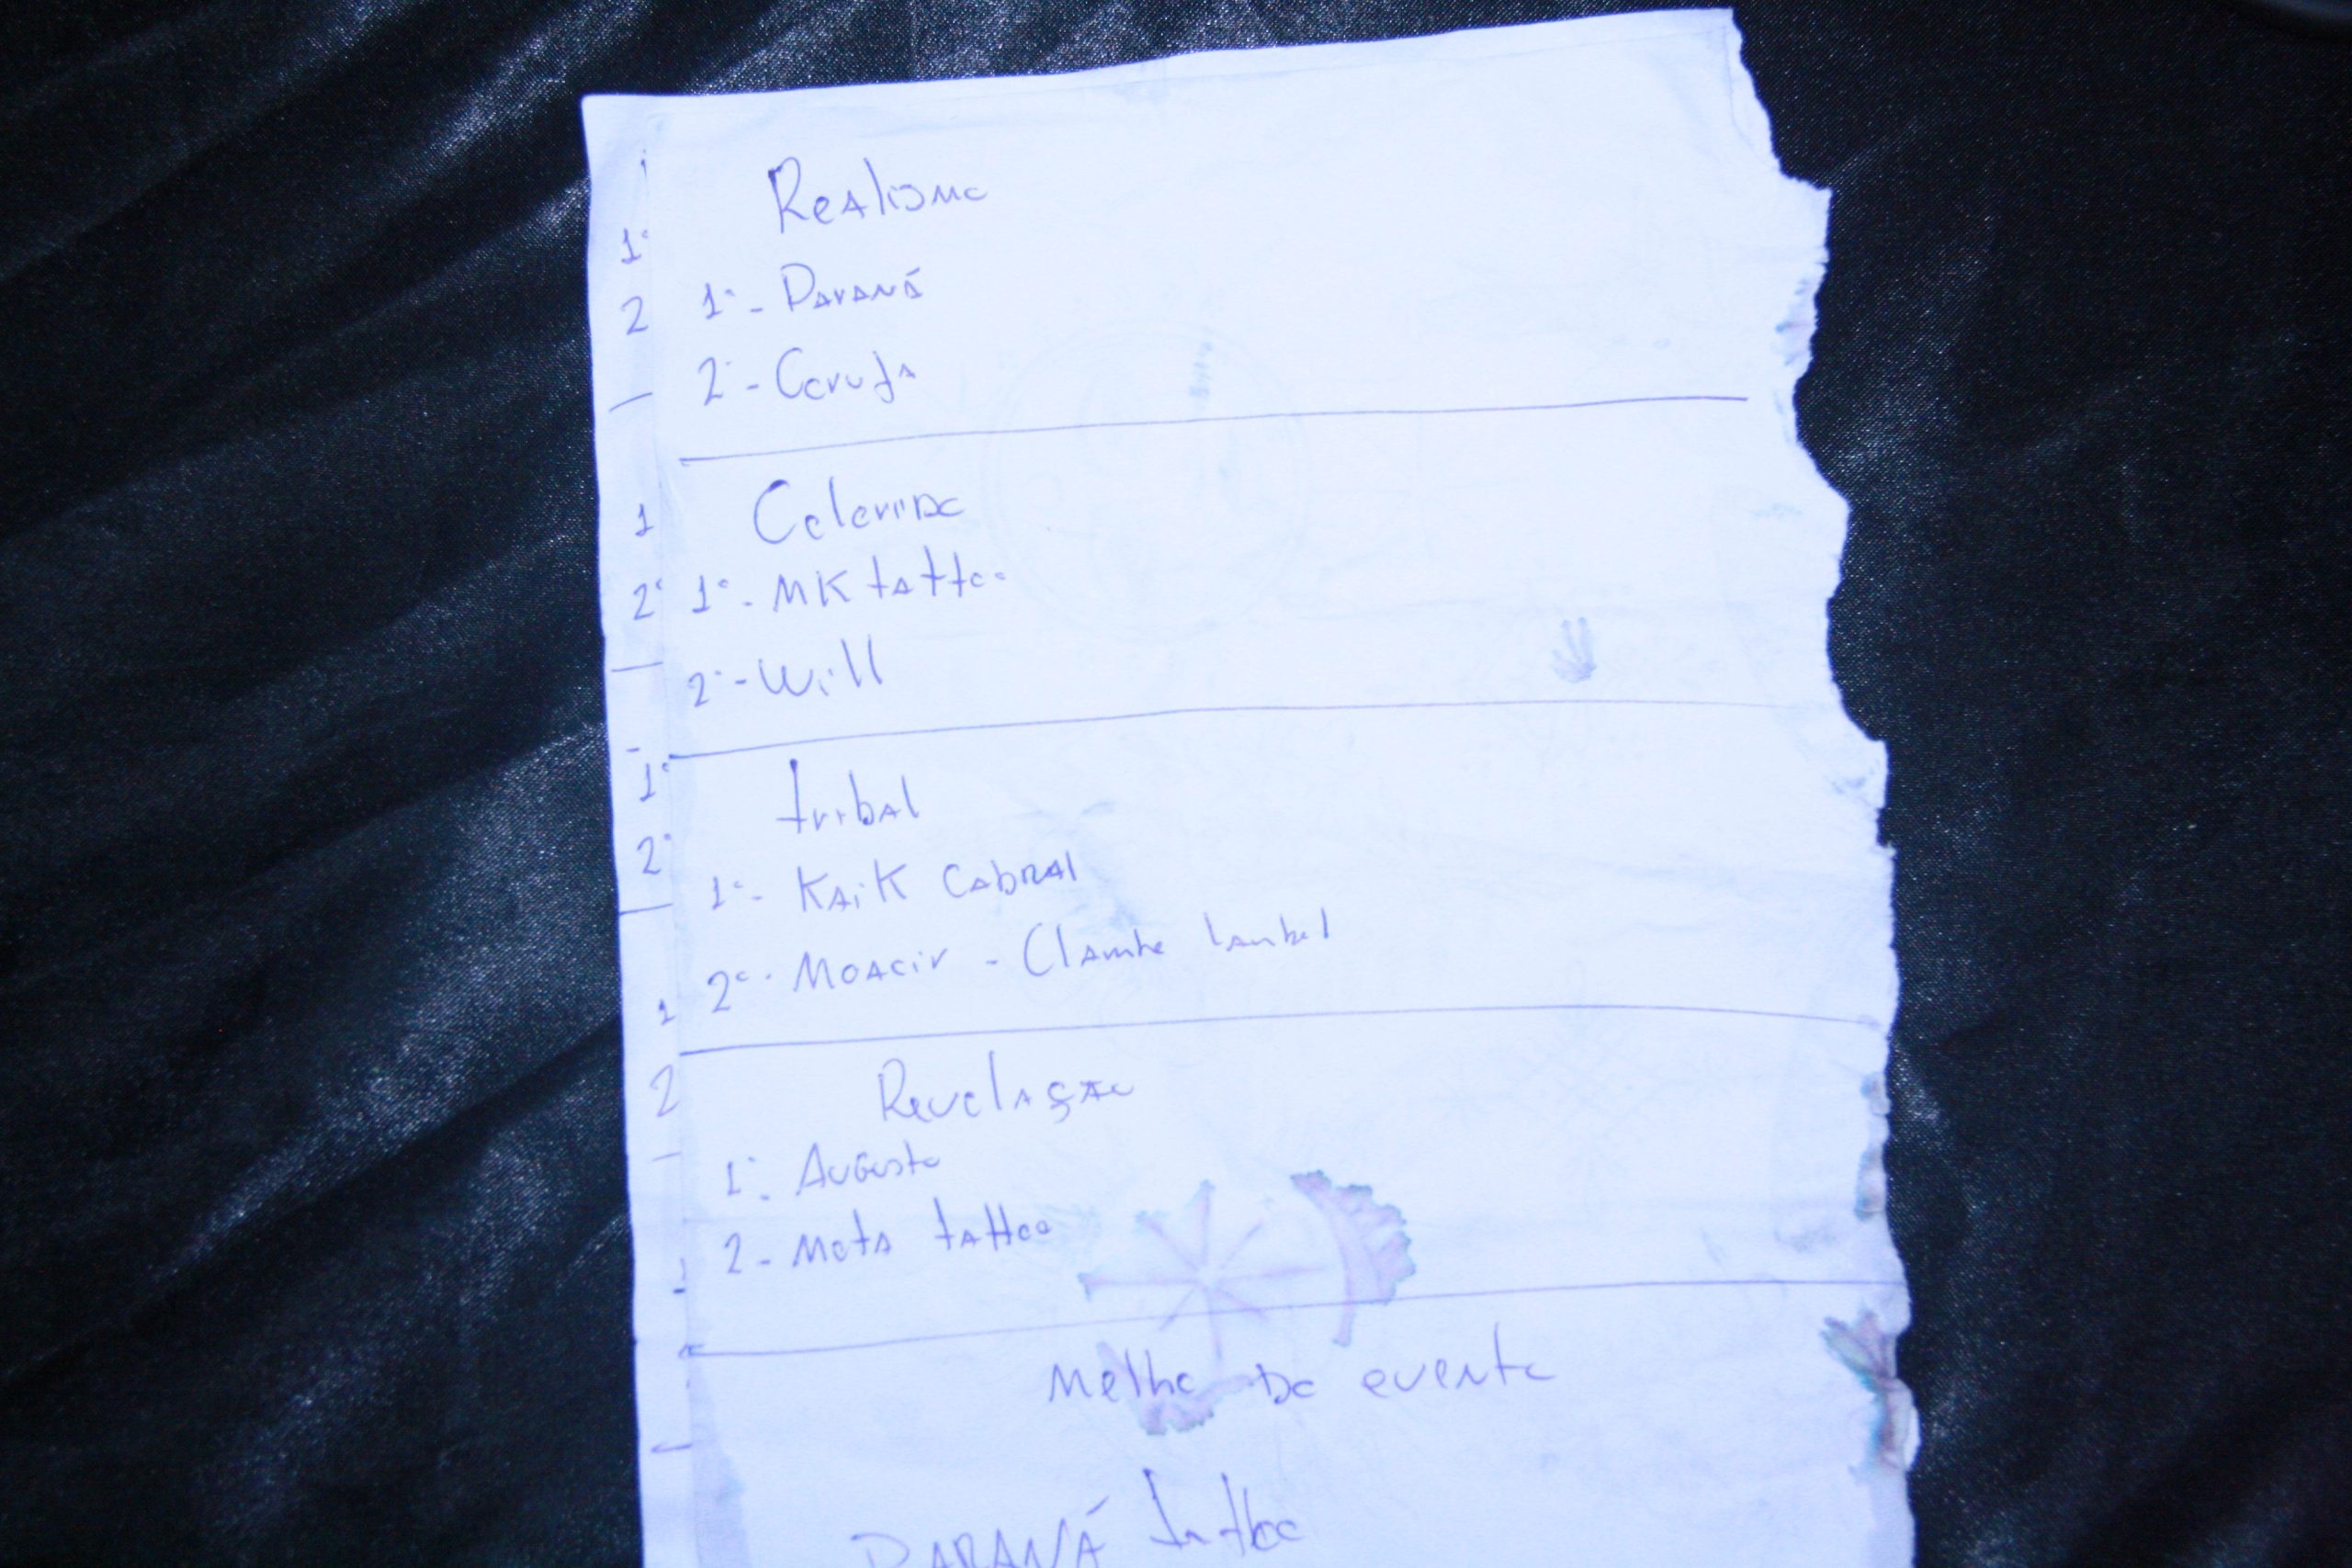 Realismo
1º - Paraná
2º - Coruja
Colorido
1º - MK tattoo
2º - Will
tribal
1º - Kaik Cabral
2º - Moacir -
Revelação
1º - Augusto
2 - Mota tattoo
Melho do evento
PARANÁ tattoo
1º
2
1
2º
1º
2º
1
2